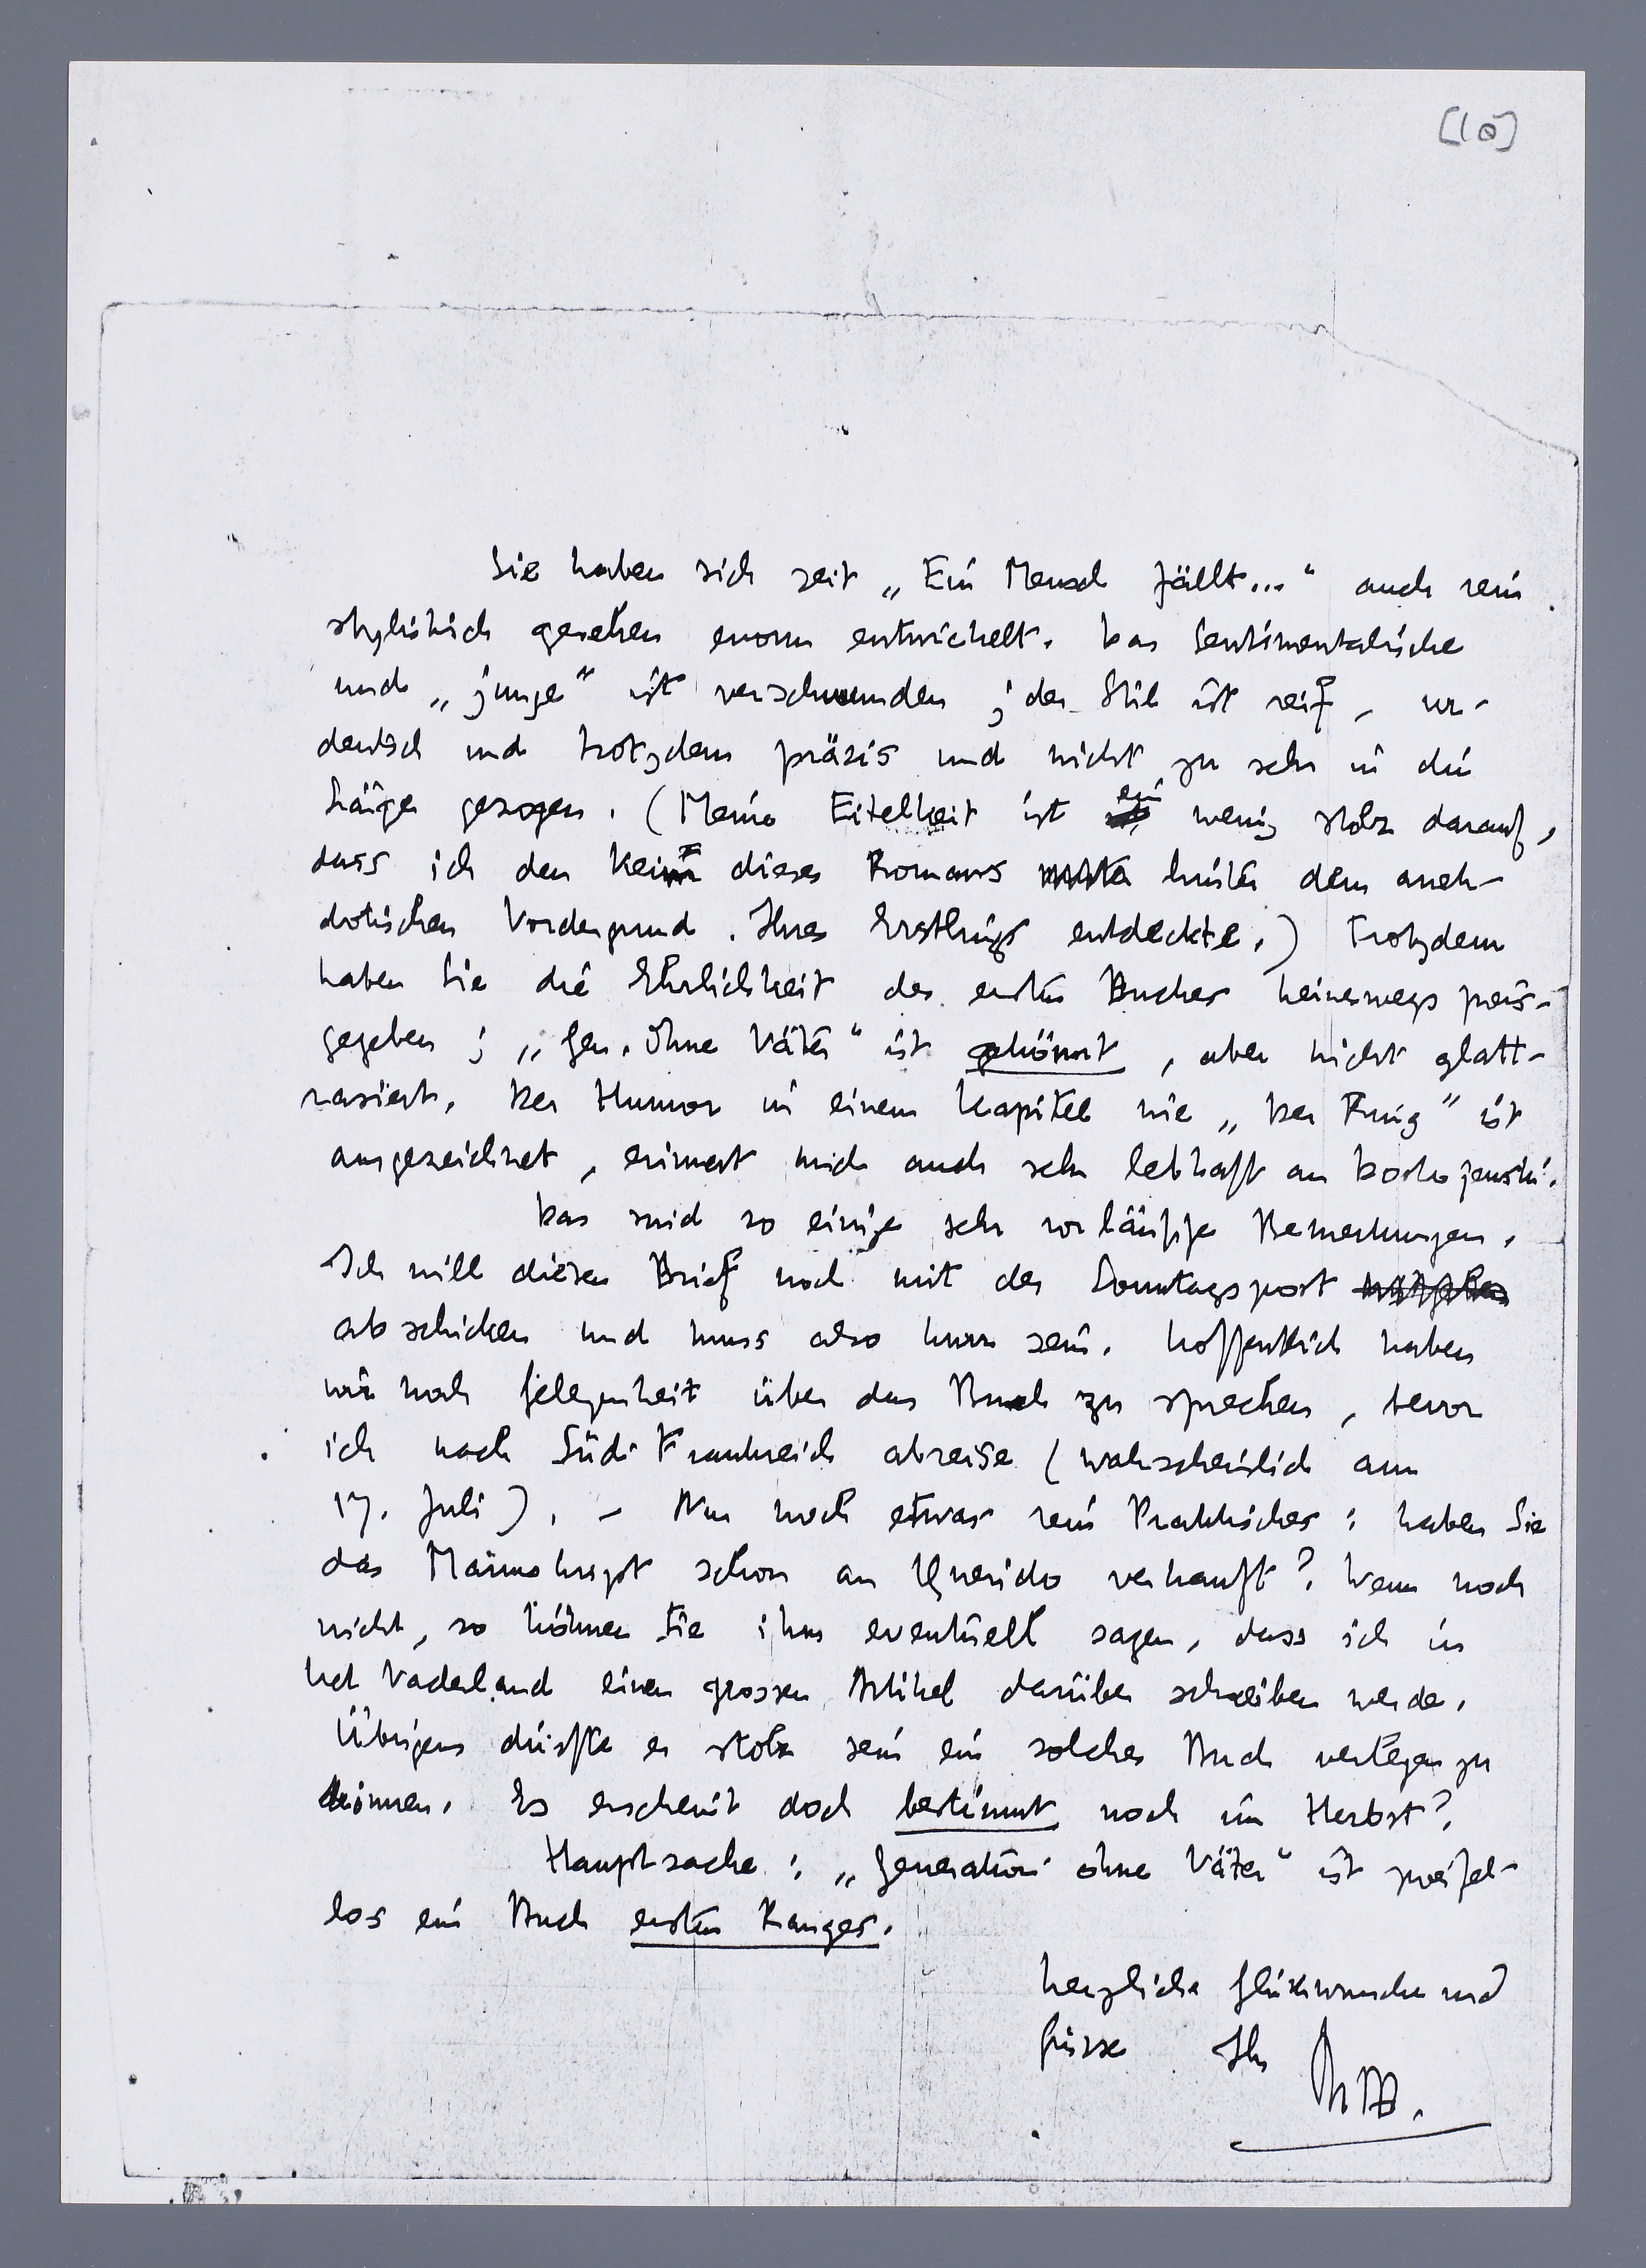 [10]
Sie haben sich seit „Ein Mensch fällt..." auch rein
stylistisch gesehen enorm entwickelt. Das Sentimentalische
und „junge" ist verschwunden; der Stil ist reif, ur-
deutsch und trotzdem präzis und nicht zu sehr in die
Länge gezogen. (Meine Eitelkeit ist ein wenig stolz darauf,
dass ich den Keim dieses Romans hinter dem anek-
dotischen Vordergrund Ihres Erstlings entdeckte.) Trotzdem
haben Sie die Ehrlichkeit des ersten Buches keineswegs preis-
gegeben; „Gen. ohne Väter" ist gekönnt, aber nicht glatt-
rasiert. Der Humor in einem Kapitel wie „Der Ring" ist
ausgezeichnet, erinnert mich auch sehr lebhaft an Dostojewski.
Das sind so einige sehr vorläufige Bemerkungen.
Ich will diesen Brief noch mit der Sonntagspost
abschicken und muss also kurz sein. Hoffentlich haben
wir noch Gelegenheit über das Buch zu sprechen, bevor
ich nach Süd-Frankreich abreise (wahrscheinlich am
17. Juli). – Nun noch etwas rein Praktisches: haben Sie
das Manuskript schon an Querido verkauft? Wenn noch
nicht, so können Sie ihm eventuell sagen, dass ich in
Het Vaderland einen grossen Artikel darüber schreiben werde.
Übrigens dürfte er stolz sein ein solches Buch verlegen zu
können. Es erscheint doch bestimmt noch im Herbst?
Hauptsache: „Generation ohne Väter" ist zweifel-
los ein Buch ersten Ranges.
Herzliche Glückwünsche und
Grüsse Ihr
MtB.